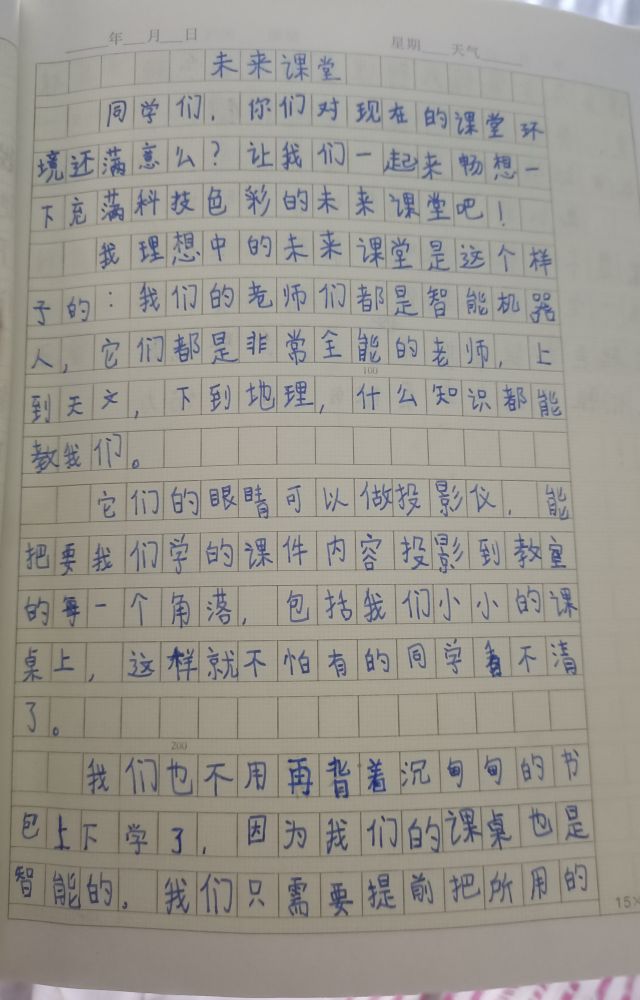 年 月 日 星期 天气
未来课堂
同学们，你们对现在的课堂环
境还满意么？让我们一起来畅想一
下充满科技色彩的未来课堂吧！
我理想中的未来课堂是这个样
子的：我们的老师们都是智能机器
人，它们都是非常全能的老师，上
100
到天文，下到地理，什么知识都能
教我们。
它们的眼睛可以做投影仪，能
把要我们学的课件内容投影到教室
的每一个角落，包括我们小小的课
桌上，这样就不怕有的同学看不清
了。
200
我们也不用再背着沉甸甸的书
包上下学了，因为我们的课桌也是
智能的。我们只需要提前把所用的